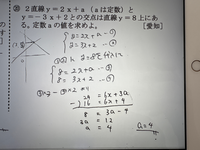 2直線y=2x+a(aは定数)と
y=-3x+2との交点は直線y=8上にあ
る。定数aの値を求めよ。 [愛知]
y=2x+a -①
y=3x+2 -②
8=2x+a -①
8=3x+2 -②
24=6x+3a
-) 16=6x+4
8=3a-4
3a=12
a=4
a=4